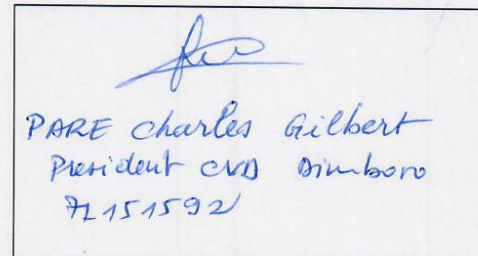 PARE Charles Gilbert
President CVD Dimboro
71151592